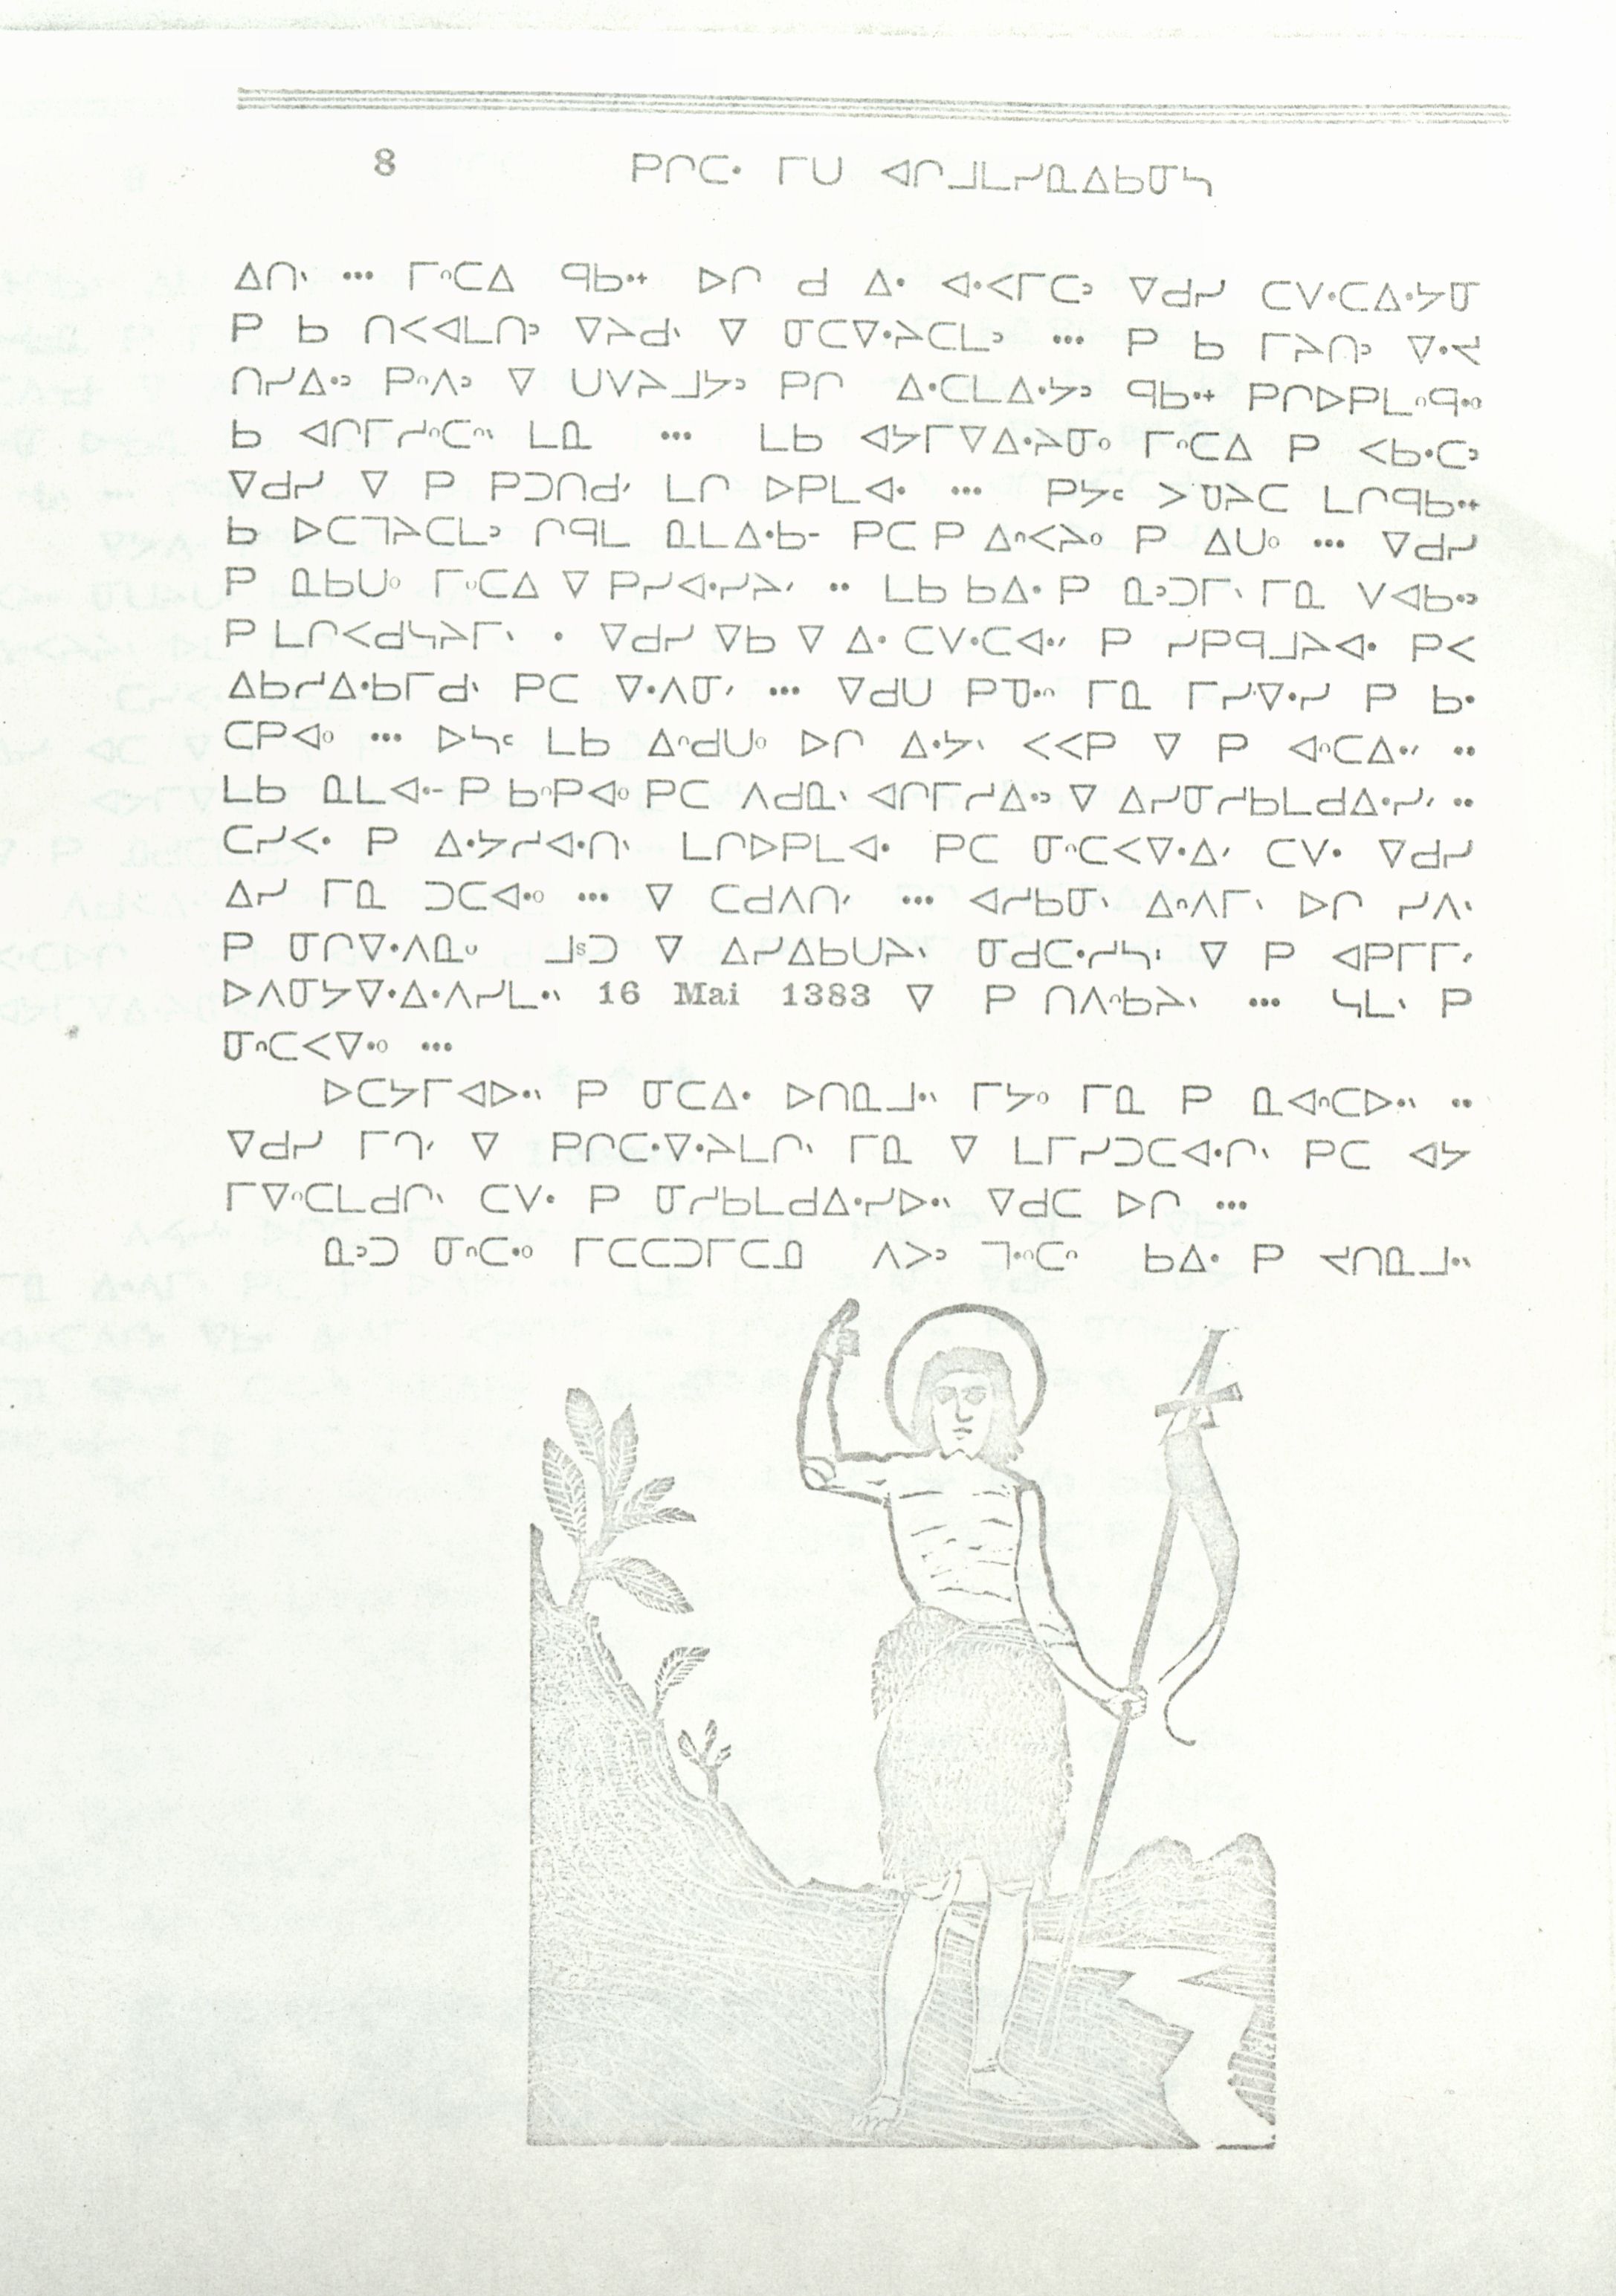 8 ᑭᒋᑕᐧ ᒥᑌ ᐊᒋᒧᒪᓯᓇᐃᑲᓂᓴ
ᐃᑎᐠ ... ᒥᐢᑕᐃ ᑫᑲᐧᕀ ᐅᒋ ᑯ ᐃᐧ ᐊᐧᐸᒥᑕᐣ ᐁᑯᓯ ᑕᐯᐧᑕᐃᐧᔭᓂ
ᑭ ᑲ ᑎᐸᐊᒪᑎᐣ ᐁᔨᑯᐠ ᐁ ᓂᑕᐁᐧᔨᑕᒪᐣ ... ᑭ ᑲ ᒥᔨᑎᐣ ᐁᐧᔪ
ᑎᓯᐃᐧᐣ ᑭᐢᐱᐣ ᐁ ᑌᐯᔨᒧᔭᐣ ᑭᒋ ᐃᐧᑕᒪᐃᐧᔭᐣ ᑫᑲᐧᕀ ᑭᒋᐅᑭᒪᐢᑫᐧᐤ
ᑲ ᐊᒋᒥᓱᐢᑕᐢᐠ ᒪᓇ ... ᒪᑲ ᐊᔭᒥᐁᐃᐧᔨᓂᐤ ᒥᐢᑕᐃ ᑭ ᐸᑲᐧᑕᐣ
ᐁᑯᓯ ᐁ ᑭ ᑭᑐᑎᑯᐟ ᒪᒋ ᐅᑭᒪᐊᐧ ... ᑭᔭᒼ ᐳᓀᔨᑕ ᒪᒋᑫᑲᐧᕀ
ᑲ ᐅᑕᒣᔨᑕᒪᐣ ᒋᑫᒪ ᓇᒪᐃᐧᑲᐨ ᑭᑕ ᑭ ᐃᐢᐸᔨᐤ ᑭ ᐃᑌᐤ ... ᐁᑯᓯ
ᑭ ᓇᑲᑌᐤ ᒥᐢᑕᐃ ᐁ ᑭᓯᐊᐧᓯᔨᐟ .. ᒪᑲ ᑲᐃᐧ ᑭ ᓇᐣᑐᒥᐠ ᒥᓇ ᐯᐊᑲᐧᐣ
ᑭ ᒪᒋᐸᑯᓭᔨᒥᐠ . ᐁᑯᓯ ᐁᑲ ᐁ ᐃᐧ ᑕᐯᐧᑕᐊᐧᐟ ᑭ ᓯᑭᑫᒧᔨᐊᐧ ᑭᐸ
ᐃᑲᓱᐃᐧᑲᒥᑯᐠ ᑭᑕ ᐁᐧᐱᓂᐟ ... ᐁᑯᑌ ᑭᓀᐧᐢ ᒥᓇ ᒥᓯᐁᐧᓯ ᑭ ᑲᐧ
ᑕᑭᐊᐤ ... ᐅᓴᒼ ᒪᑲ ᐃᐢᑯᑌᐤ ᐅᒋ ᐃᐧᔭᐠ ᐸᐸᑭ ᐁ ᑭ ᐊᐢᑕᐃᐧᐟ ..
ᒪᑲ ᓇᒪᐊᐧᐨ ᑭ ᑲᐢᑭᐊᐤ ᑭᑕ ᐱᑯᓇᐠ ᐊᒋᒥᓱᐃᐧᐣ ᐁ ᐃᓯᓂᓱᑲᒪᑯᐃᐧᓯᐟ ..
ᑕᓯᐸᐧ ᑭ ᐃᐧᔭᓱᐊᐧᑎᐠ ᒪᒋᐅᑭᒪᐊᐧ ᑭᑕ ᓂᐢᑕᐸᐁᐧᐃᐟ ᑕᐯᐧ ᐁᑯᓯ
ᐃᓯ ᒥᓇ ᑐᑕᐊᐧᐤ ... ᐁ ᑕᑯᐱᑎᐟ ... ᐊᓱᑲᓂᐠ ᐃᐢᐱᒥᐠ ᐅᒋ ᓯᐱᐠ
ᑭ ᓂᒋᐁᐧᐱᓇᐤ ᒧᕐᑐ ᐁ ᐃᓯᐃᑲᑌᔨᐠ ᓂᑯᑕᐧᓱᓴᑊ ᐁ ᑭ ᐊᑭᒥᒥᐟ
ᐅᐱᓂᔭᐁᐧᐃᐧᐱᓯᒪᐧᐠ 16 Mai 1383 ᐁ ᑭ ᑎᐱᐢᑲᔨᐠ ... ᓴᒪᐠ ᑭ
ᓂᐢᑕᐸᐁᐧᐤ ...
ᐅᑕᔭᒥᐊᐅᐧᐠ ᑭ ᓂᑕᐃᐧ ᐅᑎᓇᒧᐧᐠ ᒥᔭᐤ ᒥᓇ ᑭ ᓇᐊᐢᑕᐅᐧᐠ ..
ᐁᑯᓯ ᒥᒉᐟ ᐁ ᑭᒋᑕᐧᐁᐧᔨᒪᒋᐠ ᒥᓇ ᐁ ᒪᒥᓯᑐᑕᐊᐧᒋᐠ ᑭᑕ ᐊᔭ
ᒥᐁᐢᑕᒪᑯᒋᐠ ᑕᐯᐧ ᑭ ᓂᓱᑲᒪᑯᐃᐧᓯᐅᐧᐠ ᐁᑯᑕ ᐅᒋ ...
ᓇᐣᑐ ᓂᐢᑕᐧᐤ ᒥᑕᑕᑐᒥᑕᓇ ᐱᐳᐣ ᒣᐧᐢᑕᐢ ᑲᐃᐧ ᑭ ᔪᑎᓇᒧᐧᐠ